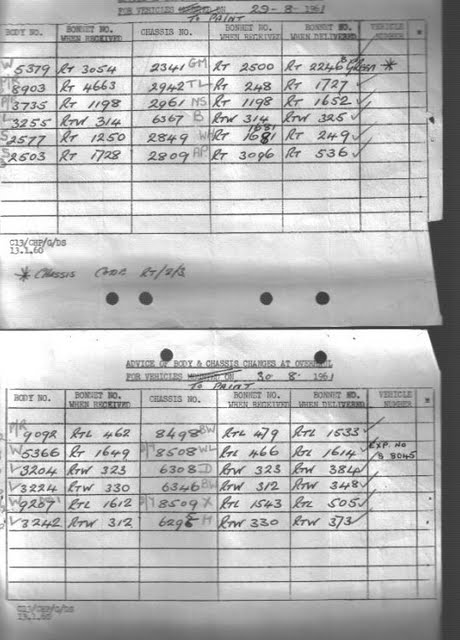 FOR VEHICLES ON 29-8-1961
TO PAINT
BODY NO. BONNET NO. WHEN RECEIVED CHASSIS NO. BONNET NO. WHEN RECEIVED BONNET NO. WHEN DELIVERED VEHICLE NUMBER *
W 5379 RT 3054 2341 GM RT 2500 RT 2246 GREEN *
8903 RT 4663 2942 TL RT 248 RT 1727 ✓
3735 RT 1198 2961 NS RT 1198 RT 1652 ✓
L 3255 RTW 314 6367 B RTW 314 RTW 325 ✓
S 2577 RT 1250 2849 W RT 1681 RT 249 ✓
S 2503 RT 1728 2809 AP RT 3096 RT 536 ✓
C13/CHP/G/DS
13.1.60
* CHASSIS CODE RT/2/3
ADVICE OF BODY & CHASSIS CHANGES AT OVERHAUL
FOR VEHICLES ON 30 8 1961
TO PAINT
BODY NO. BONNET NO. WHEN RECEIVED CHASSIS NO. BONNET NO. WHEN RECEIVED BONNET NO. WHEN DELIVERED VEHICLE NUMBER *
P/R 9092 RTL 462 8498 BW RTL 479 RTL 1533 ✓
W 5366 RT 1649 8508 WL RTL 466 RTL 1614 ✓ EXP. NO B 8045
L 3204 RTW 323 6308 D RTW 323 RTW 384 ✓
L 3224 RTW 330 6346 BW RTW 312 RTW 348 ✓
W 9207 RTL 1612 8509 X RTL 1543 RTL 505 ✓
L 3242 RTW 312 6295 H RTW 330 RTW 373 ✓
C13/CHP/G/DS
13.1.60